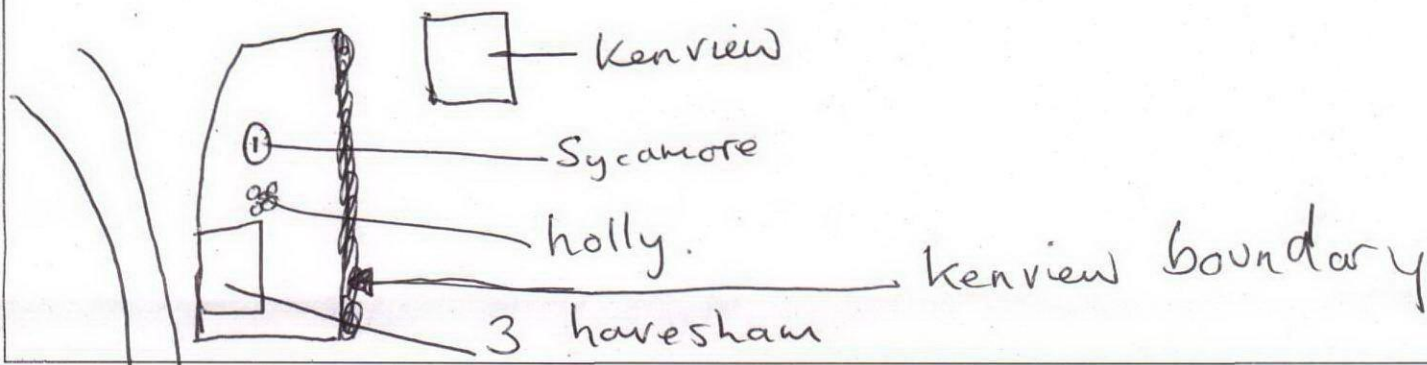 Kenview
1
Sycamore
holly.
Kenview boundary
3 havesham